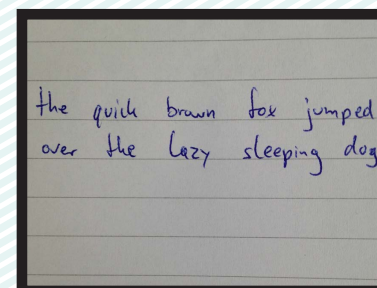 the quick brown fox jumped
over the lazy sleeping dog